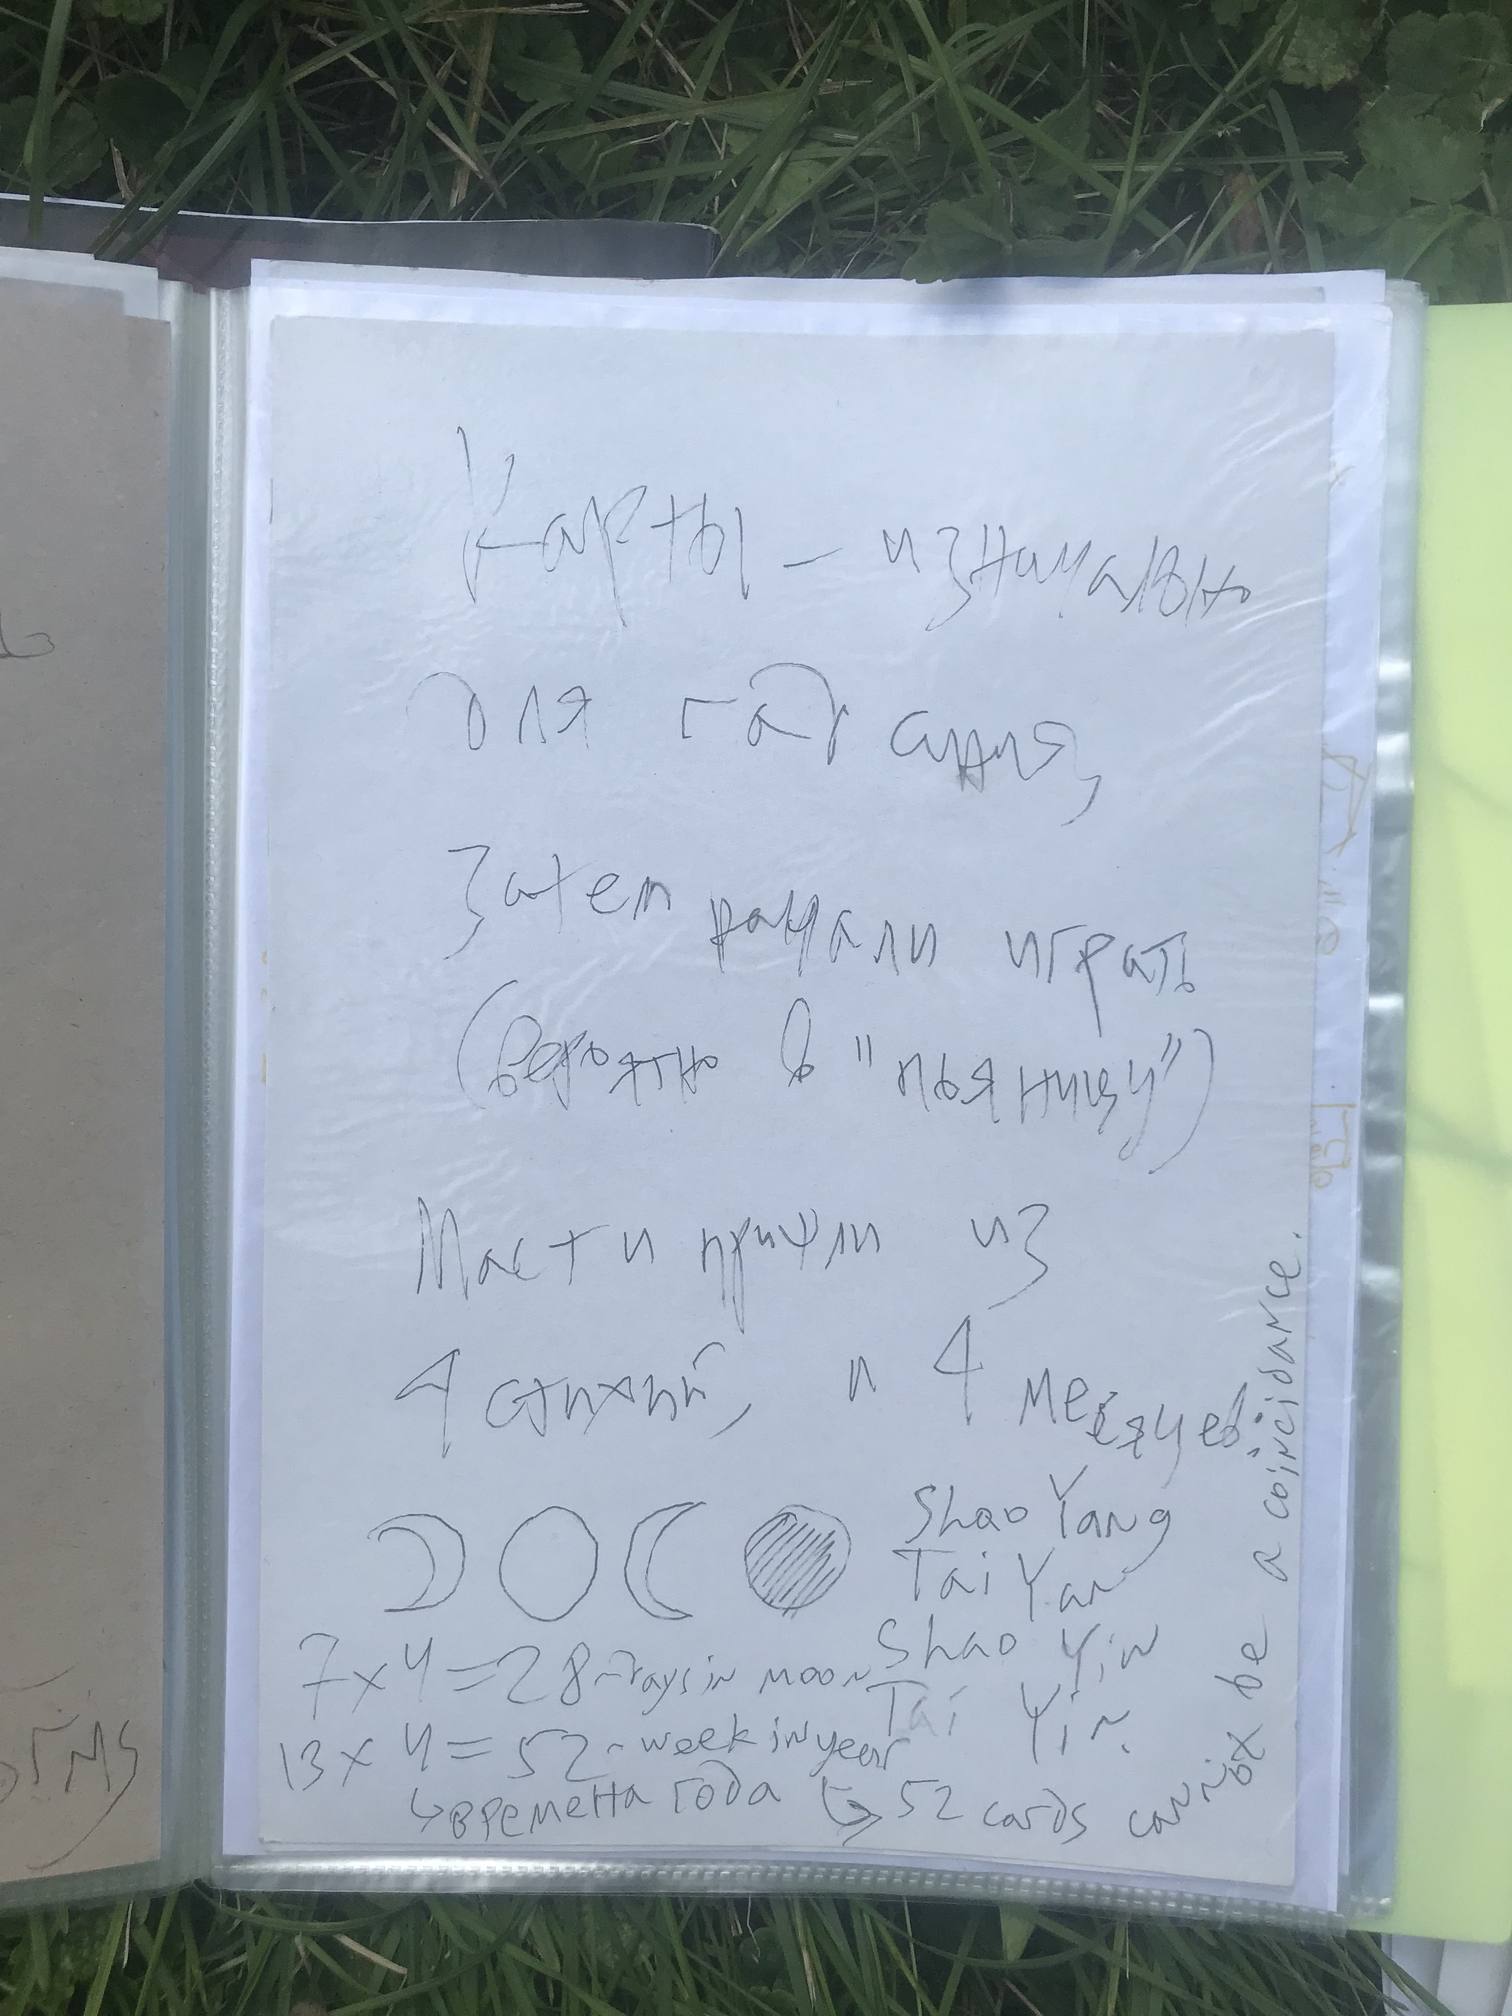 Карты – изначально
для гадания,
Затем начали играть
(вероятно в "пьяницу")
Масти пришли из
4 стихий, и 4 месяцев:
Shao Yang
Tai Yan
Shao Yin
Tai Yin
7 x 4 = 28 - days in moon
13 x 4 = 52 - week in year
↳ времена года ↳ 52 cards cannot be a coincidance.